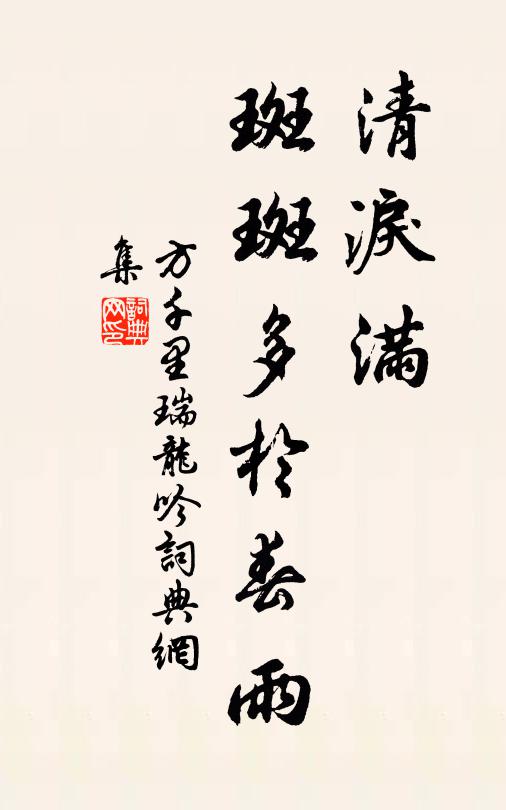 清淚滿
斑斑多於春雨
方千里瑞龍吟詞典網
集
詞典網印